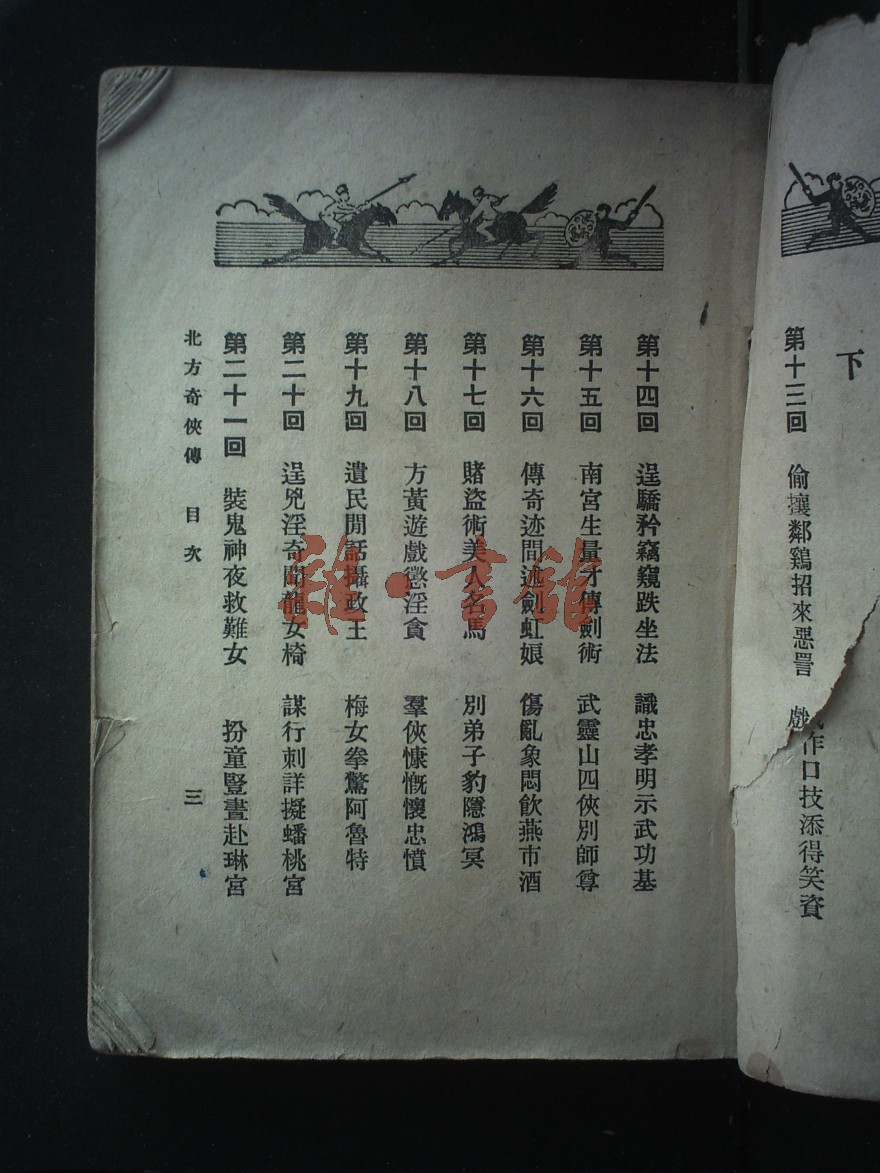 下
第十三回 偷攘鄰鷄招來惡詈 戲作口技添得笑資
第十四回 逞驕矜竊窺跌坐法 識忠孝明示武功基
第十五回 南宮生量才傳劍術 武靈山四俠別師尊
第十六回 傳奇迹間述劍虹娘 傷亂象悶飲燕市酒
第十七回 賭盜術美人名馬 別弟子豹隱鴻冥
第十八回 方黃遊戲懲淫貪 羣俠慷慨懷忠憤
第十九回 遺民閒話攝政王 梅女拳驚阿魯特
第二十回 逞兇淫奇聞龍女椅 謀行刺詳擬蟠桃宮
第二十一回 裝鬼神夜救難女 扮童豎晝赴琳宮
北方奇俠傳 目次 三
雜·書館